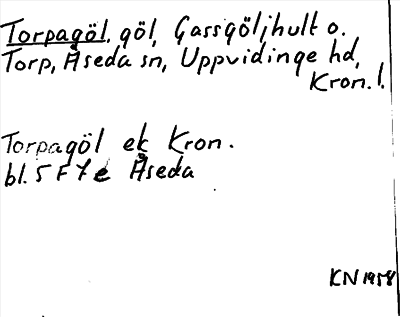 Torpagöl, göl, Gassgöljhult o.
Torp, Åseda sn, Uppvidinge hd,
Kron. l.
Torpagöl ek Kron.
bl. 5 F 7 e Åseda
KN 1958